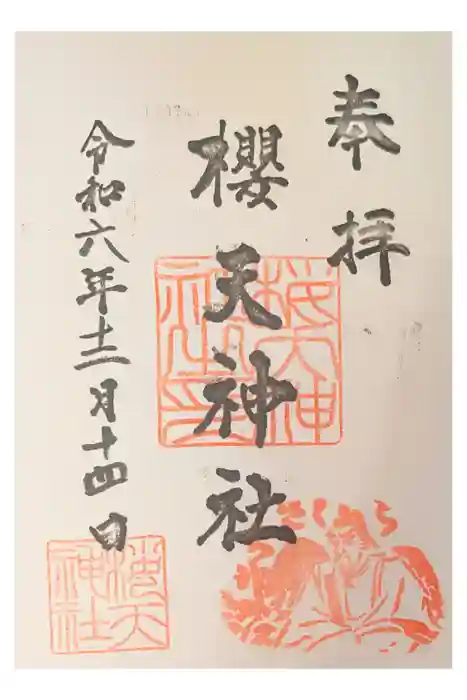 奉拝
櫻天神社
令和六年十二月十四日
桜天神
社之印
桜天
神社
さくら